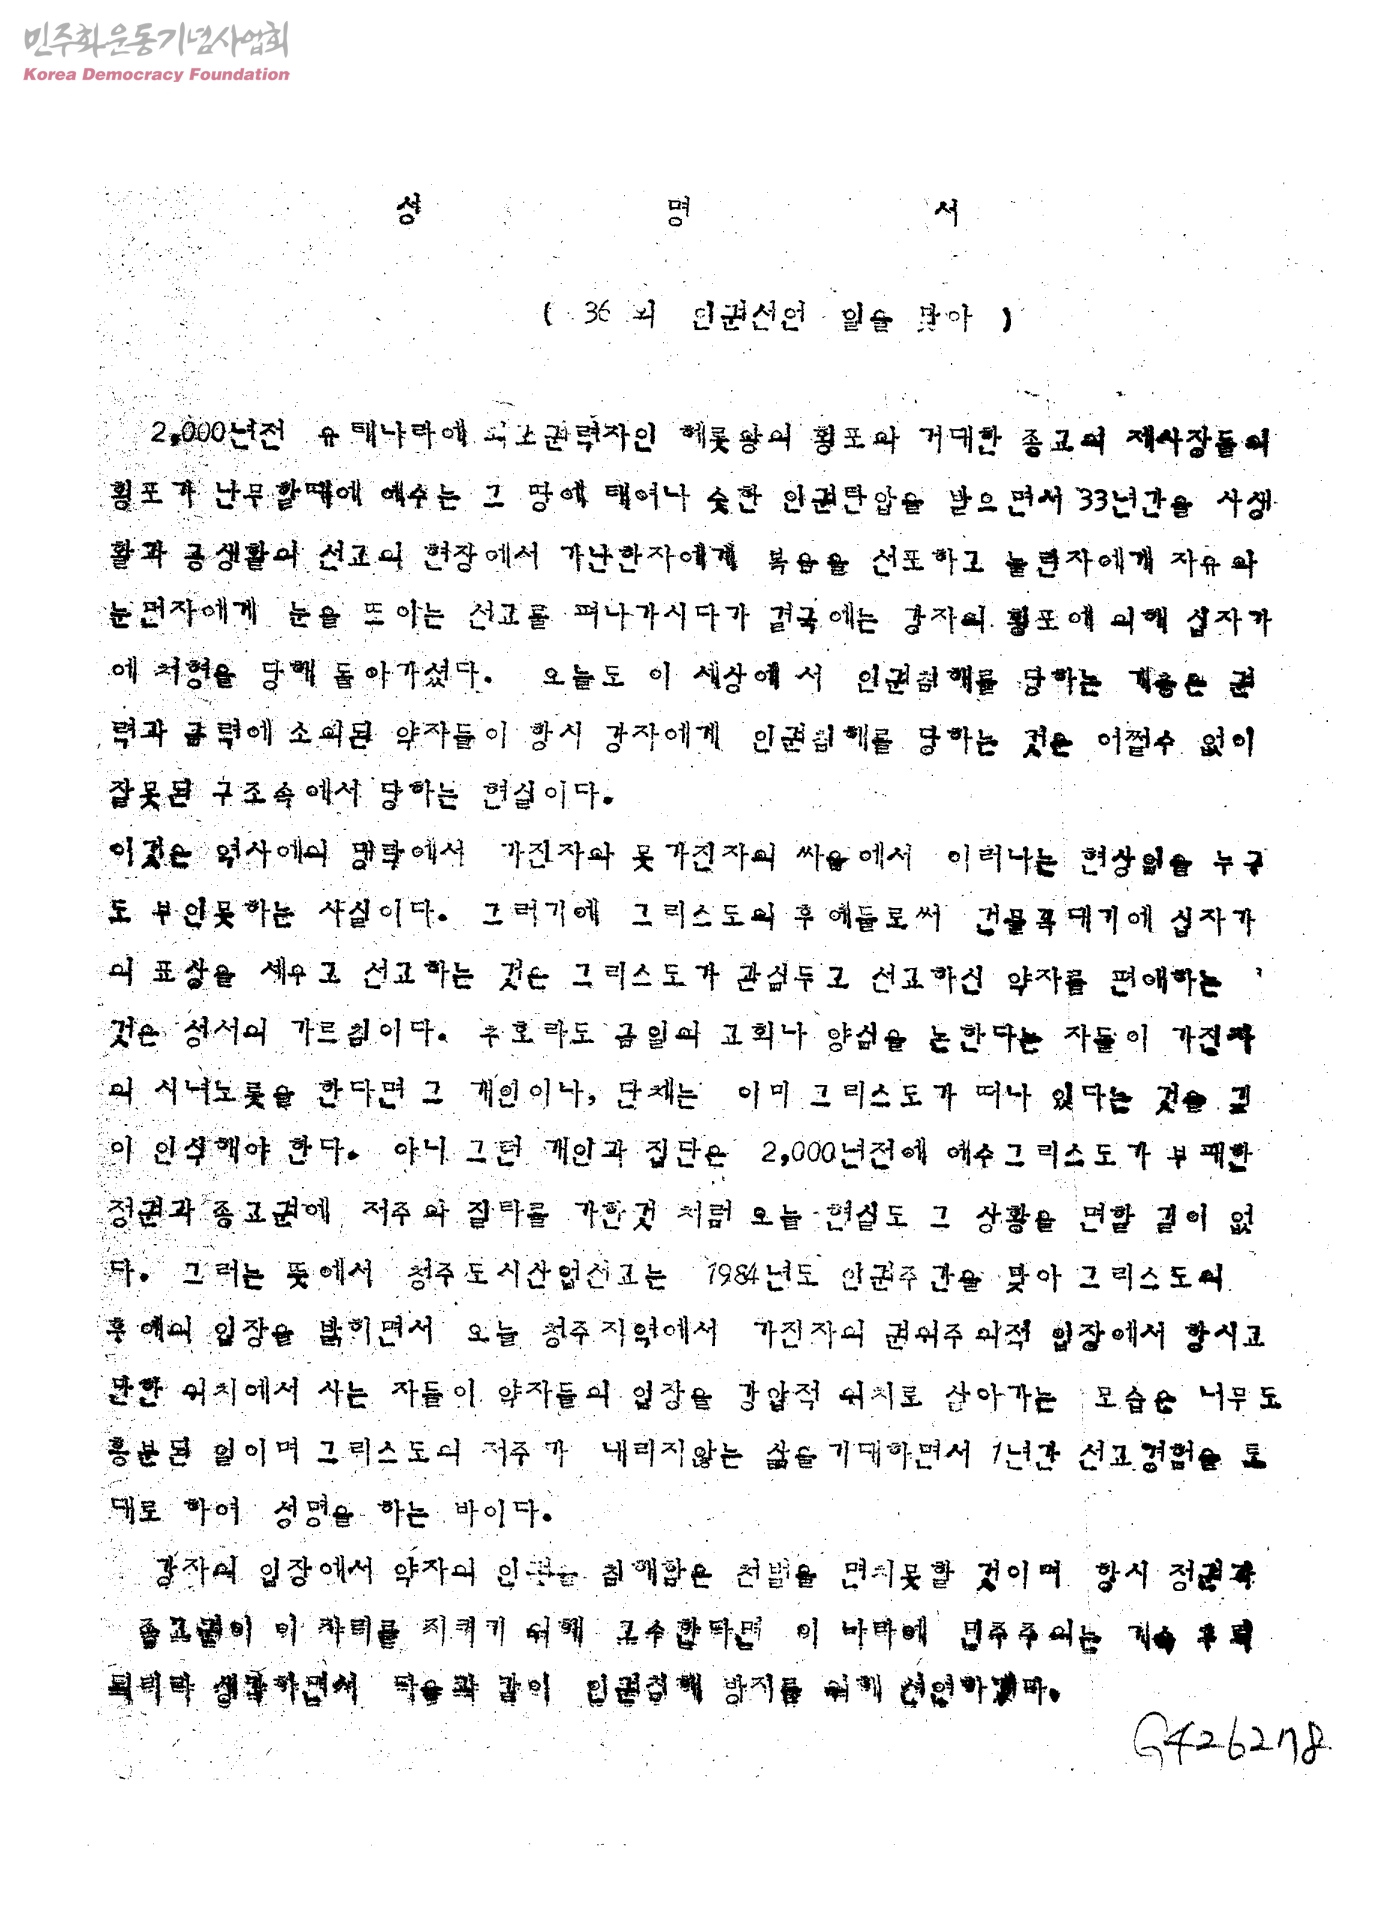 민주화운동기념사업회
Korea Democracy Foundation
성 명 서
( 36 회 인권선언 일을 맞아 )
2,000년전 유태나라에 권력자인 헤롯왕의 횡포와 거대한 종교의 제사장들의
횡포가 난무할때에 예수는 그 땅에 태어나 숫한 인권탄압을 받으면서 33년간을 사생
활과 공생활의 선교의 현장에서 가난한자에게 복음을 선포하고 눌린자에게 자유와
눈먼자에게 눈을 뜨이는 선교를 펴나가시다가 결국에는 강자의 횡포에 의해 십자가
에 처형을 당해 돌아가셨다. 오늘도 이 세상에서 인권침해를 당하는 계층은 권
력과 금력에 소외된 약자들이 항시 강자에게 인권침해를 당하는 것은 어쩔수 없이
잘못된 구조속에서 당하는 현실이다.
이것은 역사에의 맥락에서 가진자와 못가진자의 싸움에서 이러나는 현상임을 누구
도 부인못하는 사실이다. 그러기에 그리스도의 후예들로써 건물꼭대기에 십자가
의 표상을 세우고 선교하는 것은 그리스도가 관심두고 선교하신 약자를 편애하는
것은 성서의 가르침이다. 추호라도 금일의 교회나 양심을 논한다는 자들이 가진자
의 시녀노릇을 한다면 그 개인이나, 단체는 이미 그리스도가 떠나 있다는 것을 깊
이 인식해야 한다. 아니 그런 개인과 집단은 2,000년전에 예수그리스도가 부패한
정권과 종교권에 저주와 질타를 가한것 처럼 오늘 현실도 그 상황을 면할 길이 없
다. 그러는 뜻에서 청주도시산업선교는 1984년도 인권주간을 맞아 그리스도의
후예의 입장을 밝히면서 오늘 청주지역에서 가진자의 권위주의적 입장에서 항시고
단한 위치에서 사는 자들이 약자들의 입장을 강압적 위치로 삼아가는 모습은 너무도
흥분된 일이며 그리스도의 저주가 내리지않는 삶을 기대하면서 1년간 선교경험을 토
대로 하여 성명을 하는 바이다.
강자의 입장에서 약자의 인권을 침해함은 천벌을 면치못할 것이며 항시 정권과
종교권이 이 자리를 지키기 위해 고수한다면 이 나라에 민주주의는 계속 후퇴
되리라 생각하면서 다음과 같이 인권침해 방지를 위해 선언하
G426278